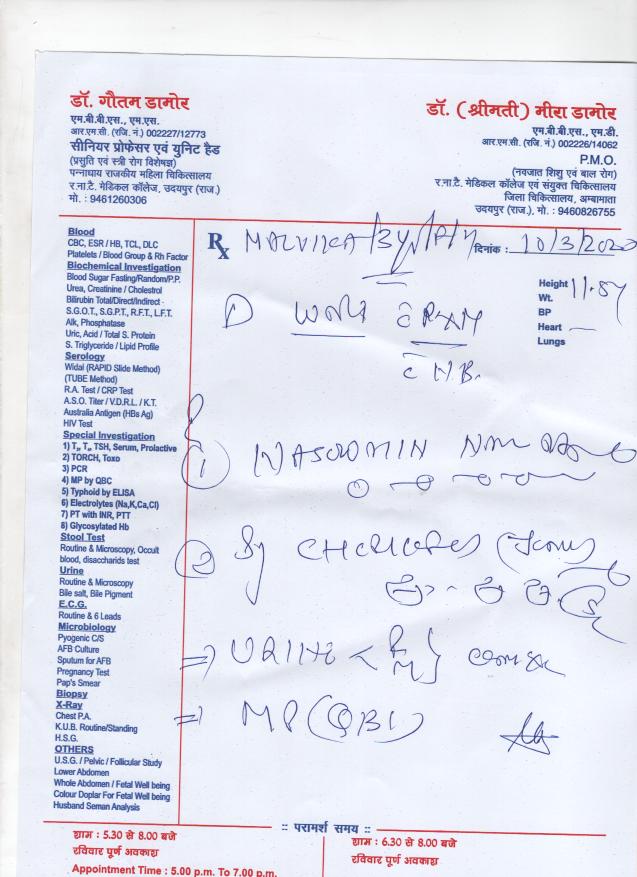 डॉ. गौतम डामोर
एम.बी.बी.एस., एम.एस.
आर.एम.सी. (रजि. नं.) 002227/12773
सीनियर प्रोफेसर एवं युनिट हैड
(प्रसुति एवं स्त्री रोग विशेषज्ञ)
पन्नाधाय राजकीय महिला चिकित्सालय
र.ना.टै. मेडिकल कॉलेज, उदयपुर (राज.)
मो. : 9461260306
डॉ. (श्रीमती) मीरा डामोर
एम.बी.बी.एस., एम.डी.
आर.एम.सी. (रजि. नं.) 002226/14062
P.M.O.
(नवजात शिशु एवं बाल रोग)
र.ना.टै. मेडिकल कॉलेज एवं संयुक्त चिकित्सालय
जिला चिकित्सालय, अम्बामाता
उदयपुर (राज.), मो. : 9460826755
Blood
CBC, ESR / HB, TCL, DLC
Platelets / Blood Group & Rh Factor
Biochemical Investigation
Blood Sugar Fasting/Random/P.P.
Urea, Creatinine / Cholestrol
Bilirubin Total/Direct/Indirect
S.G.O.T., S.G.P.T., R.F.T., L.F.T.
Alk, Phosphatase
Uric, Acid / Total S. Protein
S. Triglyceride / Lipid Profile
Serology
Widal (RAPID Slide Method)
(TUBE Method)
R.A. Test / CRP Test
A.S.O. Titer / V.D.R.L. / K.T.
Australia Antigen (HBs Ag)
HIV Test
Special Investigation
1) T₃, T₄, TSH, Serum, Prolactive
2) TORCH, Toxo
3) PCR
4) MP by QBC
5) Typhoid by ELISA
6) Electrolytes (Na,K,Ca,Cl)
7) PT with INR, PTT
8) Glycosylated Hb
Stool Test
Routine & Microscopy, Occult
blood, disaccharids test
Urine
Routine & Microscopy
Bile salt, Bile Pigment
E.C.G.
Routine & 6 Leads
Microbiology
Pyogenic C/S
AFB Culture
Sputum for AFB
Pregnancy Test
Pap's Smear
Biopsy
X-Ray
Chest P.A.
K.U.B. Routine/Standing
H.S.G.
OTHERS
U.S.G. / Pelvic / Follicular Study
Lower Abdomen
Whole Abdomen / Fetal Well being
Colour Doplar For Fetal Well being
Husband Seman Analysis
Rx MALVIKA दिनांक : 10/3/2020
Height
Wt.
BP
Heart
Lungs
N.B.
1
2
MP
:: परामर्श समय ::
शाम : 5.30 से 8.00 बजे
रविवार पूर्ण अवकाश
Appointment Time : 5.00 p.m. To 7.00 p.m.
शाम : 6.30 से 8.00 बजे
रविवार पूर्ण अवकाश